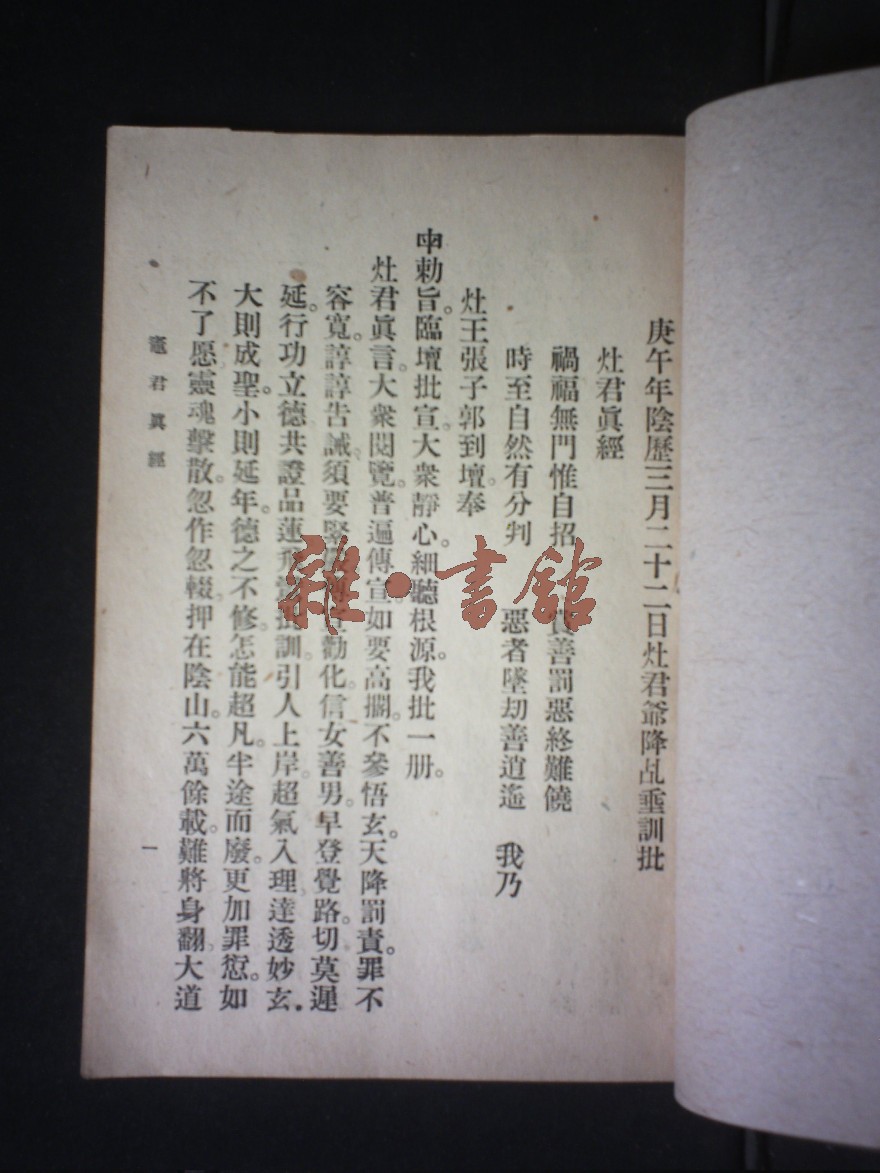 庚午年陰歷三月二十二日灶君爺降乩垂訓批
灶君眞經
禍福無門惟自招 賞善罰惡終難饒
時至自然有分判 惡者墜刧善逍遙 我乃
灶王張子郭到壇。奉
申勅旨。臨壇批宣。大衆靜心。細聽根源。我批一册。
灶君眞言。大衆閱覽。普遍傳宣。如要高擱。不參悟玄。天降罰責。罪不
容寬。諄諄告誡。須要 勸化。信女善男。早登覺路。切莫遲
延。行功立德共證品蓮 訓。引人上岸。超氣入理。達透妙玄。
大則成聖。小則延年。德之不修。怎能超凡。半途而廢。更加罪愆。如
不了愿。靈魂擊散。忽作忽輟。押在陰山。六萬餘載。難將身翻。大道
竈君眞經
一
雜·書館